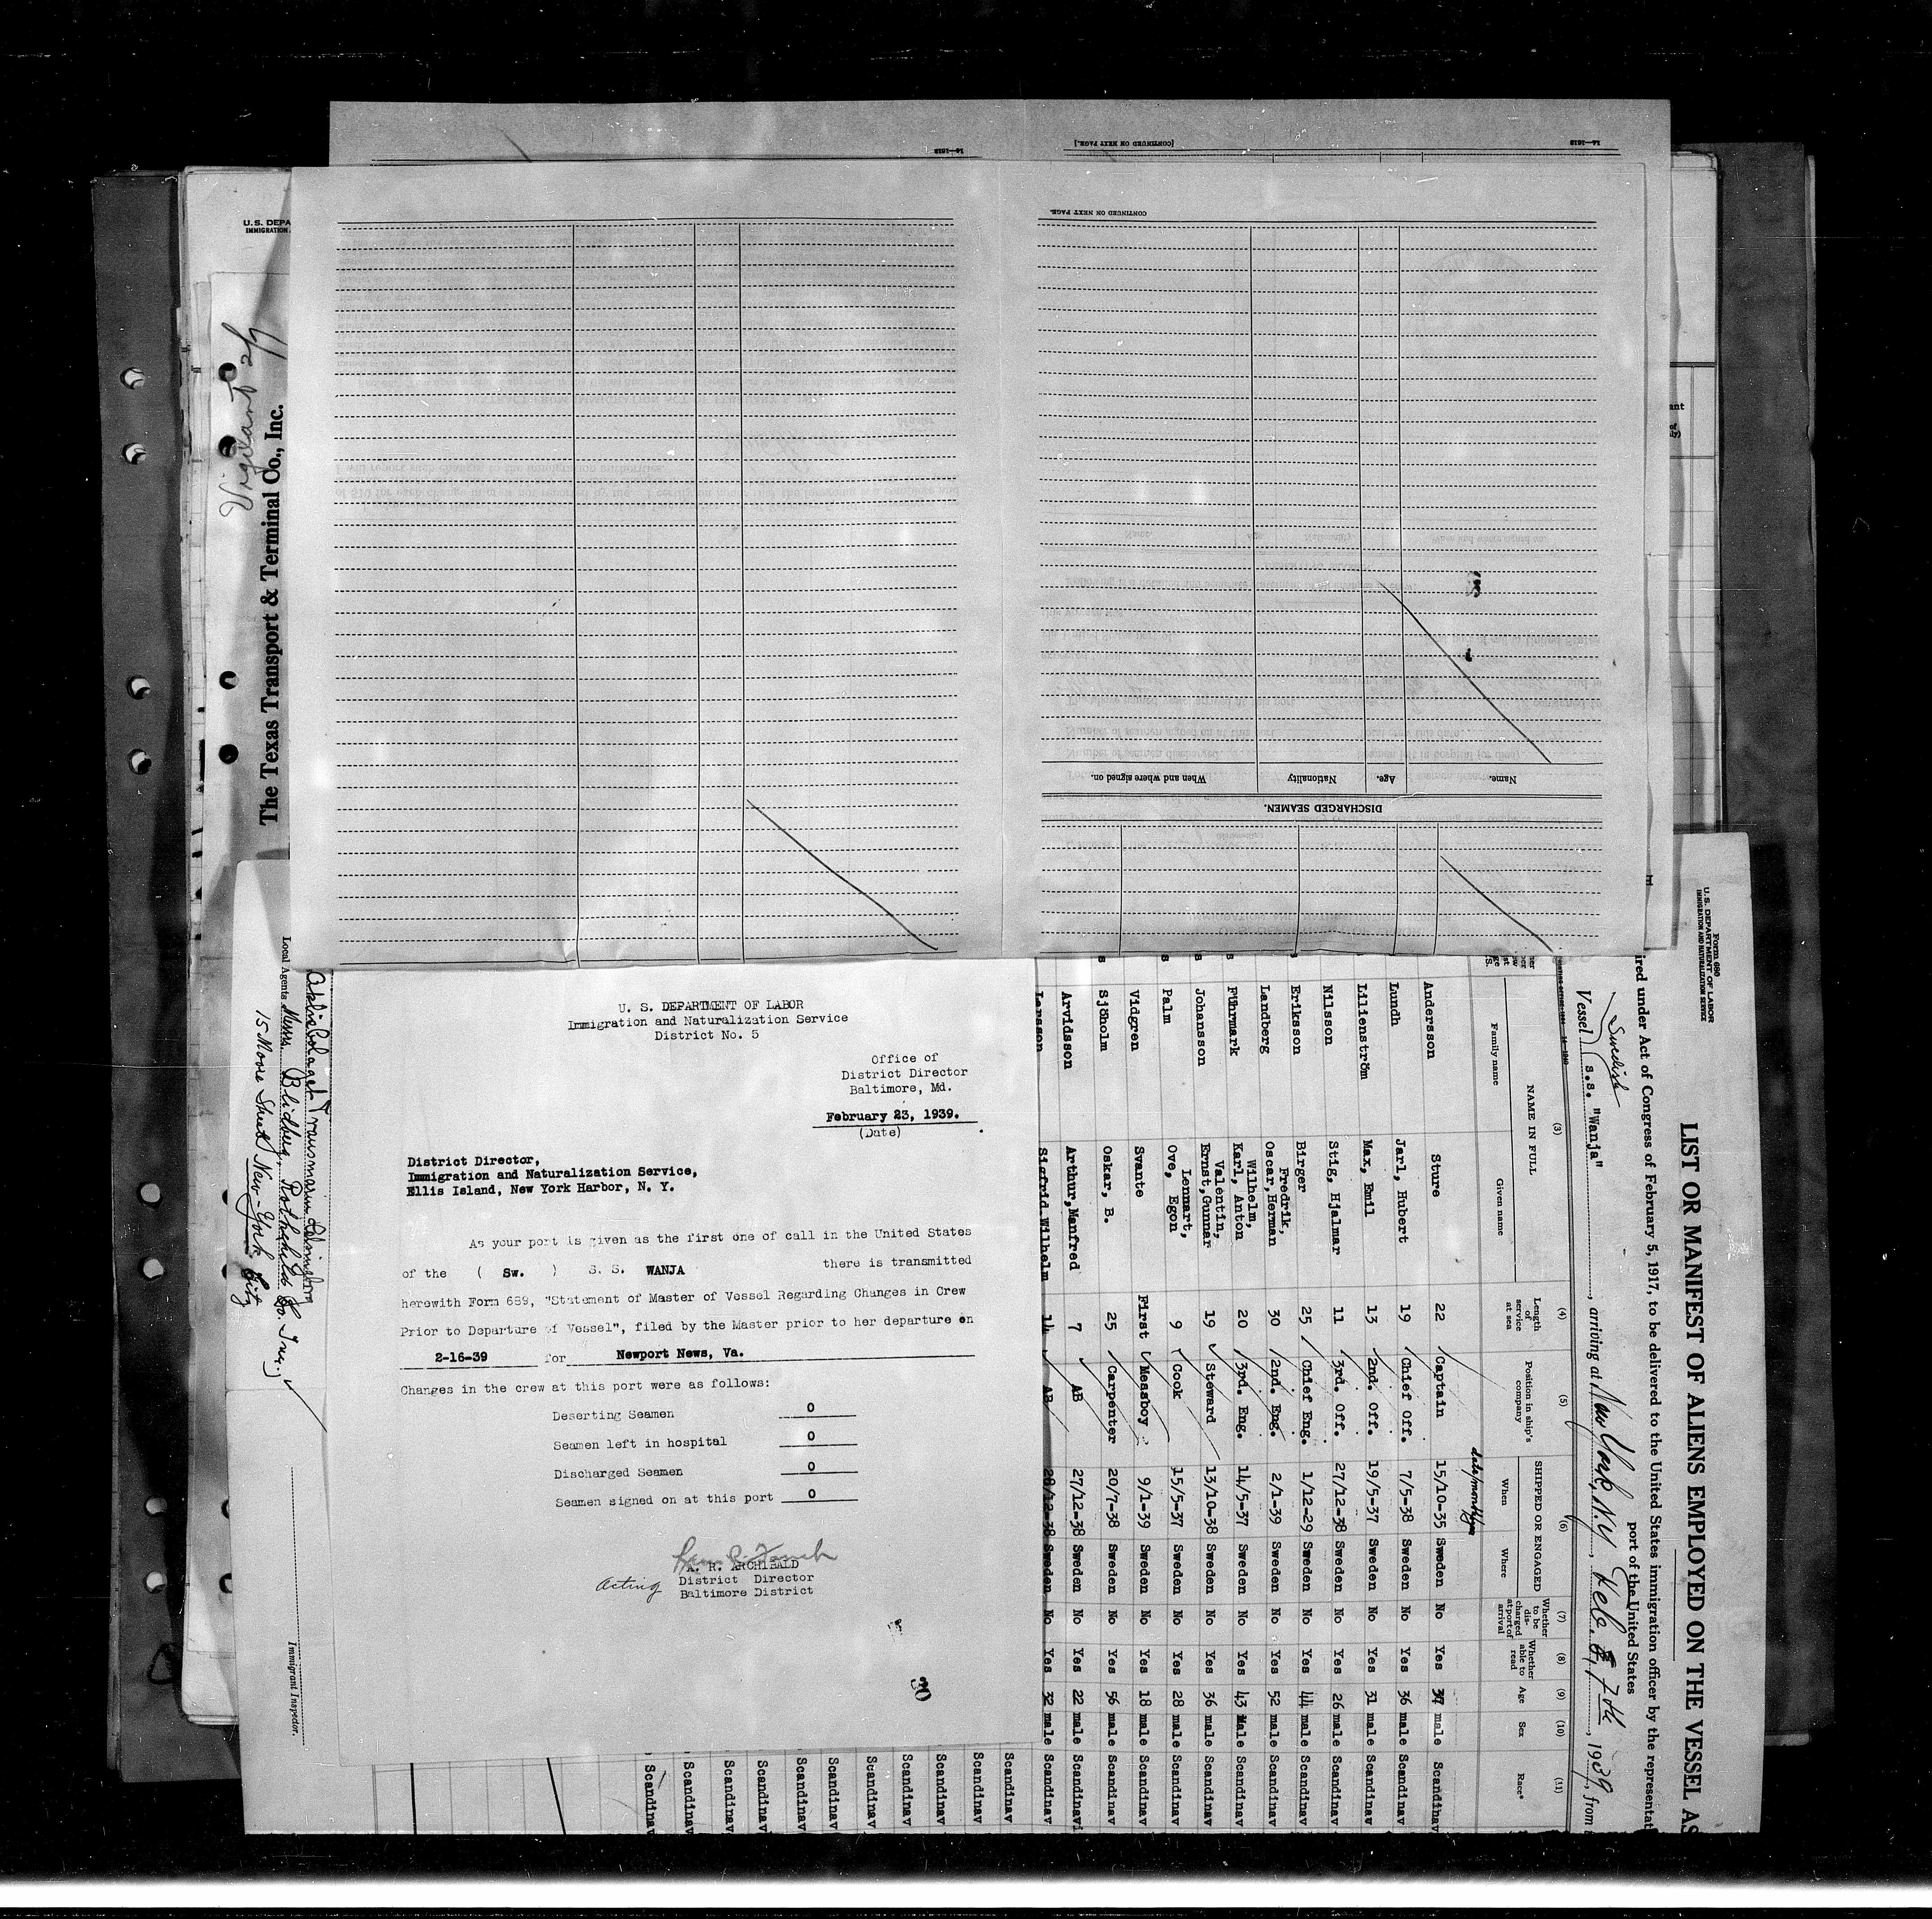 16—1618
[CONTINUED ON NEXT PAGE.]
16—1618
CONTINUED ON NEXT PAGE.
Name.
Age.
Nationality
When and where signed on.
DISCHARGED SEAMEN.
U. S. DEPA
IMMIGRATION
Vigilant 2/7
The Texas Transport & Terminal Co., Inc.
U. S. DEPARTMENT OF LABOR
Immigration and Naturalization Service
District No. 5
Office of
District Director
Baltimore, Md.
February 23, 1939.
(Date)
District Director,
Immigration and Naturalization Service,
Ellis Island, New York Harbor, N. Y.
As your port is given as the first one of call in the United States
of the ( Sw. ) S. S. WANJA there is transmitted
herewith Form 689, "Statement of Master of Vessel Regarding Changes in Crew
Prior to Departure of Vessel", filed by the Master prior to her departure on
2-16-39 for Newport News, Va.
Changes in the crew at this port were as follows:
Deserting Seamen 0
Seamen left in hospital 0
Discharged Seamen 0
Seamen signed on at this port 0
A. R. ARCHIBALD
Acting District Director
Baltimore District
30
Form 680
U. S. DEPARTMENT OF LABOR
IMMIGRATION AND NATURALIZATION SERVICE
LIST OR MANIFEST OF ALIENS EMPLOYED ON THE VESSEL AS
ired under Act of Congress of February 5, 1917, to be delivered to the United States immigration officer by the representat
port of the United States
Swedish
Vessel s.s. "Wanja", arriving at New York, N.Y. Feb. 7th, 1939, from
(3) (4) (5) (6) (7) (8) (9) (10) (11)
NAME IN FULL
Family name
Given name
Length of service at sea
Position in ship's company
SHIPPED OR ENGAGED
When
Where
Whether to be discharged at port of arrival
Whether able to read
Age
Sex
Race*
date/month/year
Andersson Sture 22 Captain 15/10-35 Sweden No Yes 37 male Scandinav
Lundh Jarl, Hubert 19 Chief Off. 7/5-38 Sweden No Yes 36 male Scandinav
Lilienström Max, Emil 13 2nd. Off. 19/5-37 Sweden No Yes 31 male Scandinav
Nilsson Stig, Hjalmar 11 3rd. Off. 27/12-38 Sweden No Yes 26 male Scandinav
Eriksson Birger 25 Chief Eng. 1/12-29 Sweden No Yes 44 male Scandinav
Landberg Fredrik, Oscar, Herman 30 2nd. Eng. 2/1-39 Sweden No Yes 52 male Scandinav
Führmark Wilhelm, Karl, Anton 20 3rd. Eng. 14/5-37 Sweden No Yes 43 Male Scandinav
Johansson Valentin, Ernst, Gunnar 19 Steward 13/10-38 Sweden No Yes 36 male Scandinav
Palm Lennart, Ove, Egon 9 Cook 15/5-37 Sweden No Yes 28 male Scandinav
Vidgren Svante First Messboy 9/1-39 Sweden No Yes 18 male Scandinav
Sjöholm Oskar, B. 25 Carpenter 20/7-38 Sweden No Yes 56 male Scandinav
Arvidsson Arthur, Manfred 7 AB 27/12-38 Sweden No Yes 22 male Scandinavi
Larsson Sigfrid, Wilhelm 14 AB 28/12-38 Sweden No Yes 32 male Scandinav
Scandinav
Scandinav
Scandinav
Scandinav
Scandinav
Scandinav
Scandinav
Scandinav
Scandinav
Scandinav
Scandinav
Local Agents Messrs. Blidberg, Rothchild Co. Inc.)
15 Moore Street, New-York City
Immigrant Inspector.